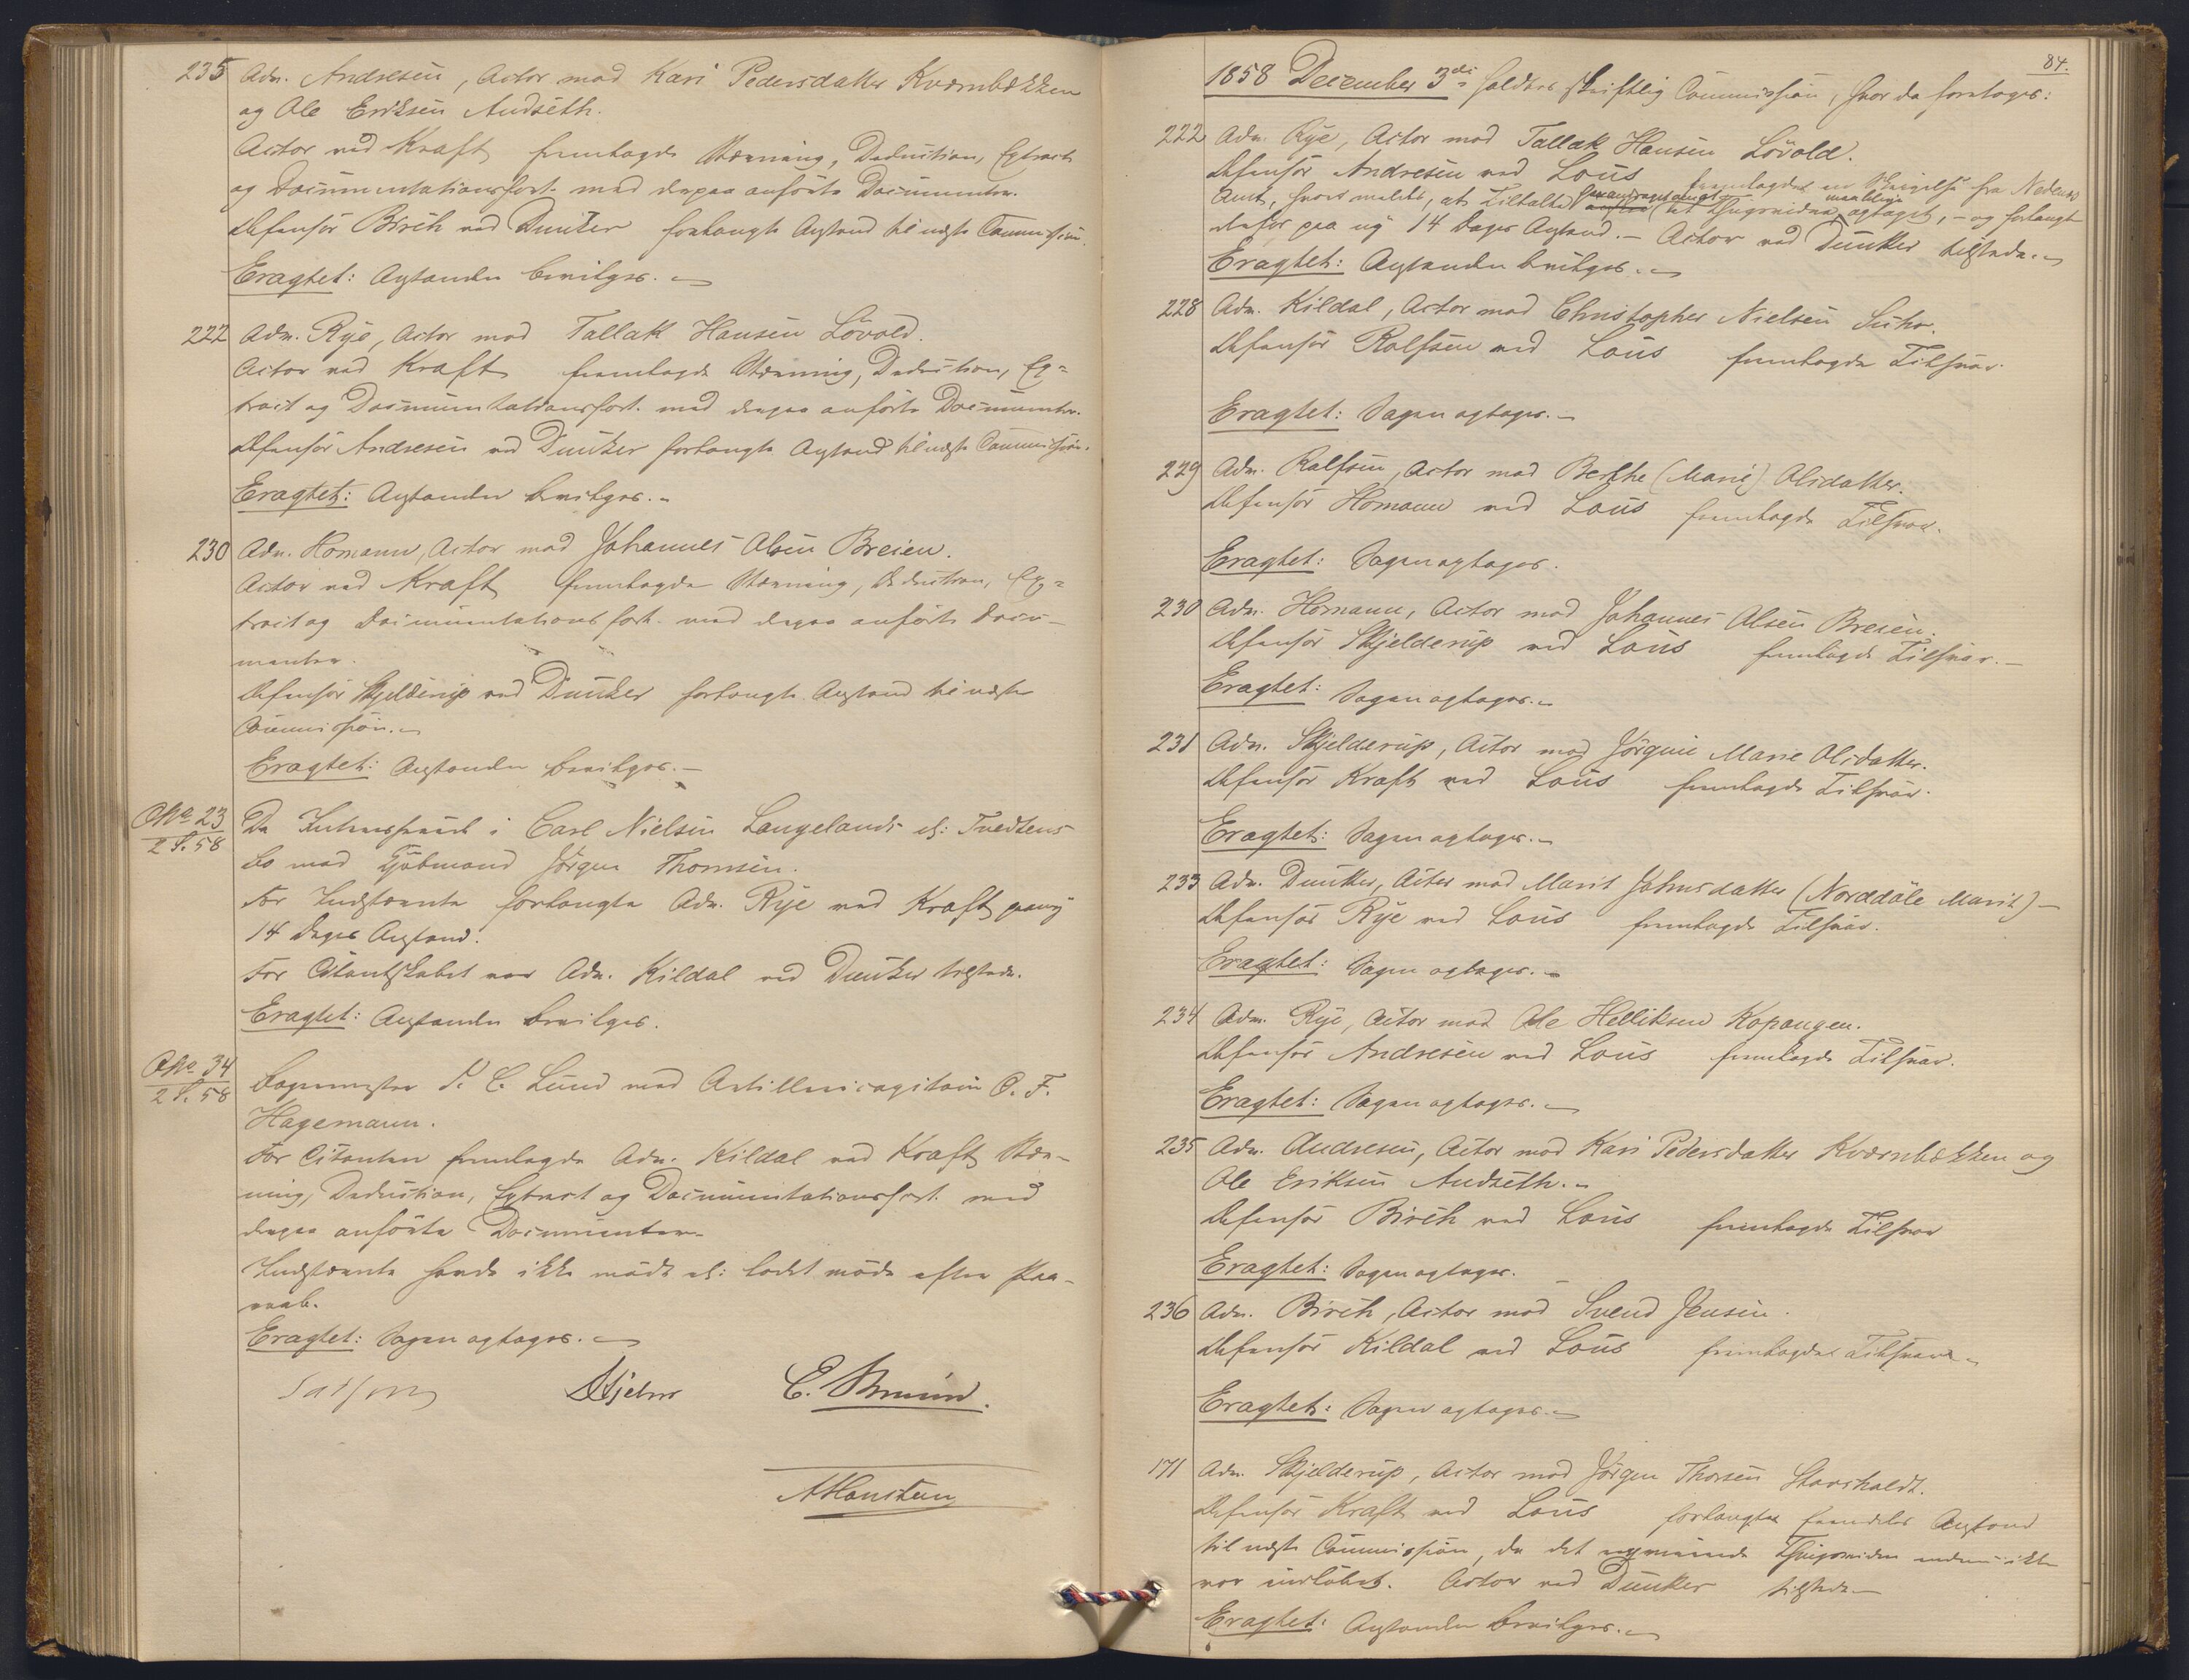 235 Adv. Andresen, Actor mod Kari Pedersdatter Kværnbækken
og Ole Eriksen Audseth.
Actor ved Kraft fremlagde Stævning, Deduction, Extract
og Documentationsfort. med derpaa anførte Documenter.
Defensor Birch ved Dunker forlangte Anstand til næste Commission.
Eragtet: Anstanden bevilges.
222 Adv. Rye, Actor mod Tallak Hansen Løvold.
Actor ved Kraft fremlagde Stævning, Deduction, Ex=
tract og Documentationsfort. med derpaa anførte Documenter.
Defensor Andresen ved Dunker forlangte Anstand til næste Commission.
Eragtet: Anstanden bevilges.
230 Adv. Homann, Actor mod Johannes Olsen Breien.
Actor ved Kraft fremlagde Stævning, Deduction, Ex=
tract og Documentationsfort. med derpaa anførte Docu-
menter.
Defensor Skjelderup ved Dunker forlangte Anstand til næste
Commission.
Eragtet: Anstanden bevilges.
No 23
2 S. 58
De Interesserede i Carl Nielsen Langelands el: Tvedtens
Bo mod Kjøbmand Jørgen Thomsen.
For Indstævnte forlangte Adv. Rye ved Kraft paany
14 Dages Anstand.
For Citantskabet var Adv. Kildal ved Dunker tilstede.
Eragtet: Anstanden bevilges.
No 34
2 S. 58
Bogmester P. C. Lund mod Artillericapitain O. F.
Hagemann.
For Citanten fremlagde Adv. Kildal ved Kraft Stæv-
ning, Deduction, Extract og Documentationsfort. med
derpaa anførte Documenter.
Indstævnte havde ikke mødt el: ladet møde efter Paa-
raab.
Eragtet: Sagen optages.
E.
AHansteen
84.
1858 December 3die holdtes skriftlig Commission, hvor da foretoges:
222 Adv. Rye, Actor mod Tallak Hansen Løvold.
Defensor Andresen ved Lous fremlagde en Skrivelse fra Nedenes
Amt, hvori meldes, at Tiltalte det Thingsvidne optaget, - og forlangte
derfor paa ny 14 Dages Anstand. - Actor ved Dunker tilstede.
Eragtet: Anstanden bevilges.
228 Adv. Kildal, Actor mod Christopher Nielsen
Defensor Rolfsen ved Lous fremlagde Tilsvar.
Eragtet: Sagen optages.
229 Adv. Rolfsen, Actor mod Berthe (Marie) Olsdatter.
Defensor Homann ved Lous fremlagde Tilsvar.
Eragtet: Sagen optages.
230 Adv. Homann, Actor mod Johannes Olsen Breien.
Defensor Skjelderup ved Lous fremlagde Tilsvar.
Eragtet: Sagen optages.
231 Adv. Skjelderup, Actor mod Jørgine Marie Olsdatter.
Defensor Kraft ved Lous fremlagde Tilsvar.
Eragtet: Sagen optages.
233 Adv. Dunker, Actor mod Marit Johnsdatter (Norddøle Marit) -
Defensor Rye ved Lous fremlagde Tilsvar.
Eragtet: Sagen optages.
234 Adv. Rye, Actor mod Ole Helliksen Kopangen.
Defensor Andresen ved Lous fremlagde Tilsvar.
Eragtet: Sagen optages.
235 Adv. Andresen, Actor mod Kari Pedersdatter Kværnbækken og
Ole Eriksen Audseth.
Defensor Birch ved Lous fremlagde Tilsvar
Eragtet: Sagen optages.
236 Adv. Birch, Actor mod Svend Jensen.
Defensor Kildal ved Lous fremlagde Tilsvar.
Eragtet: Sagen optages.
171 Adv. Skjelderup, Actor mod Jørgen Thorsen
Defensor Kraft ved Lous forlangte fremdeles Anstand
til næste Commission, da det Thingsvidne endnu ikke
var indløbet. Actor ved Dunker tilstede
Eragtet: Anstanden bevilges.